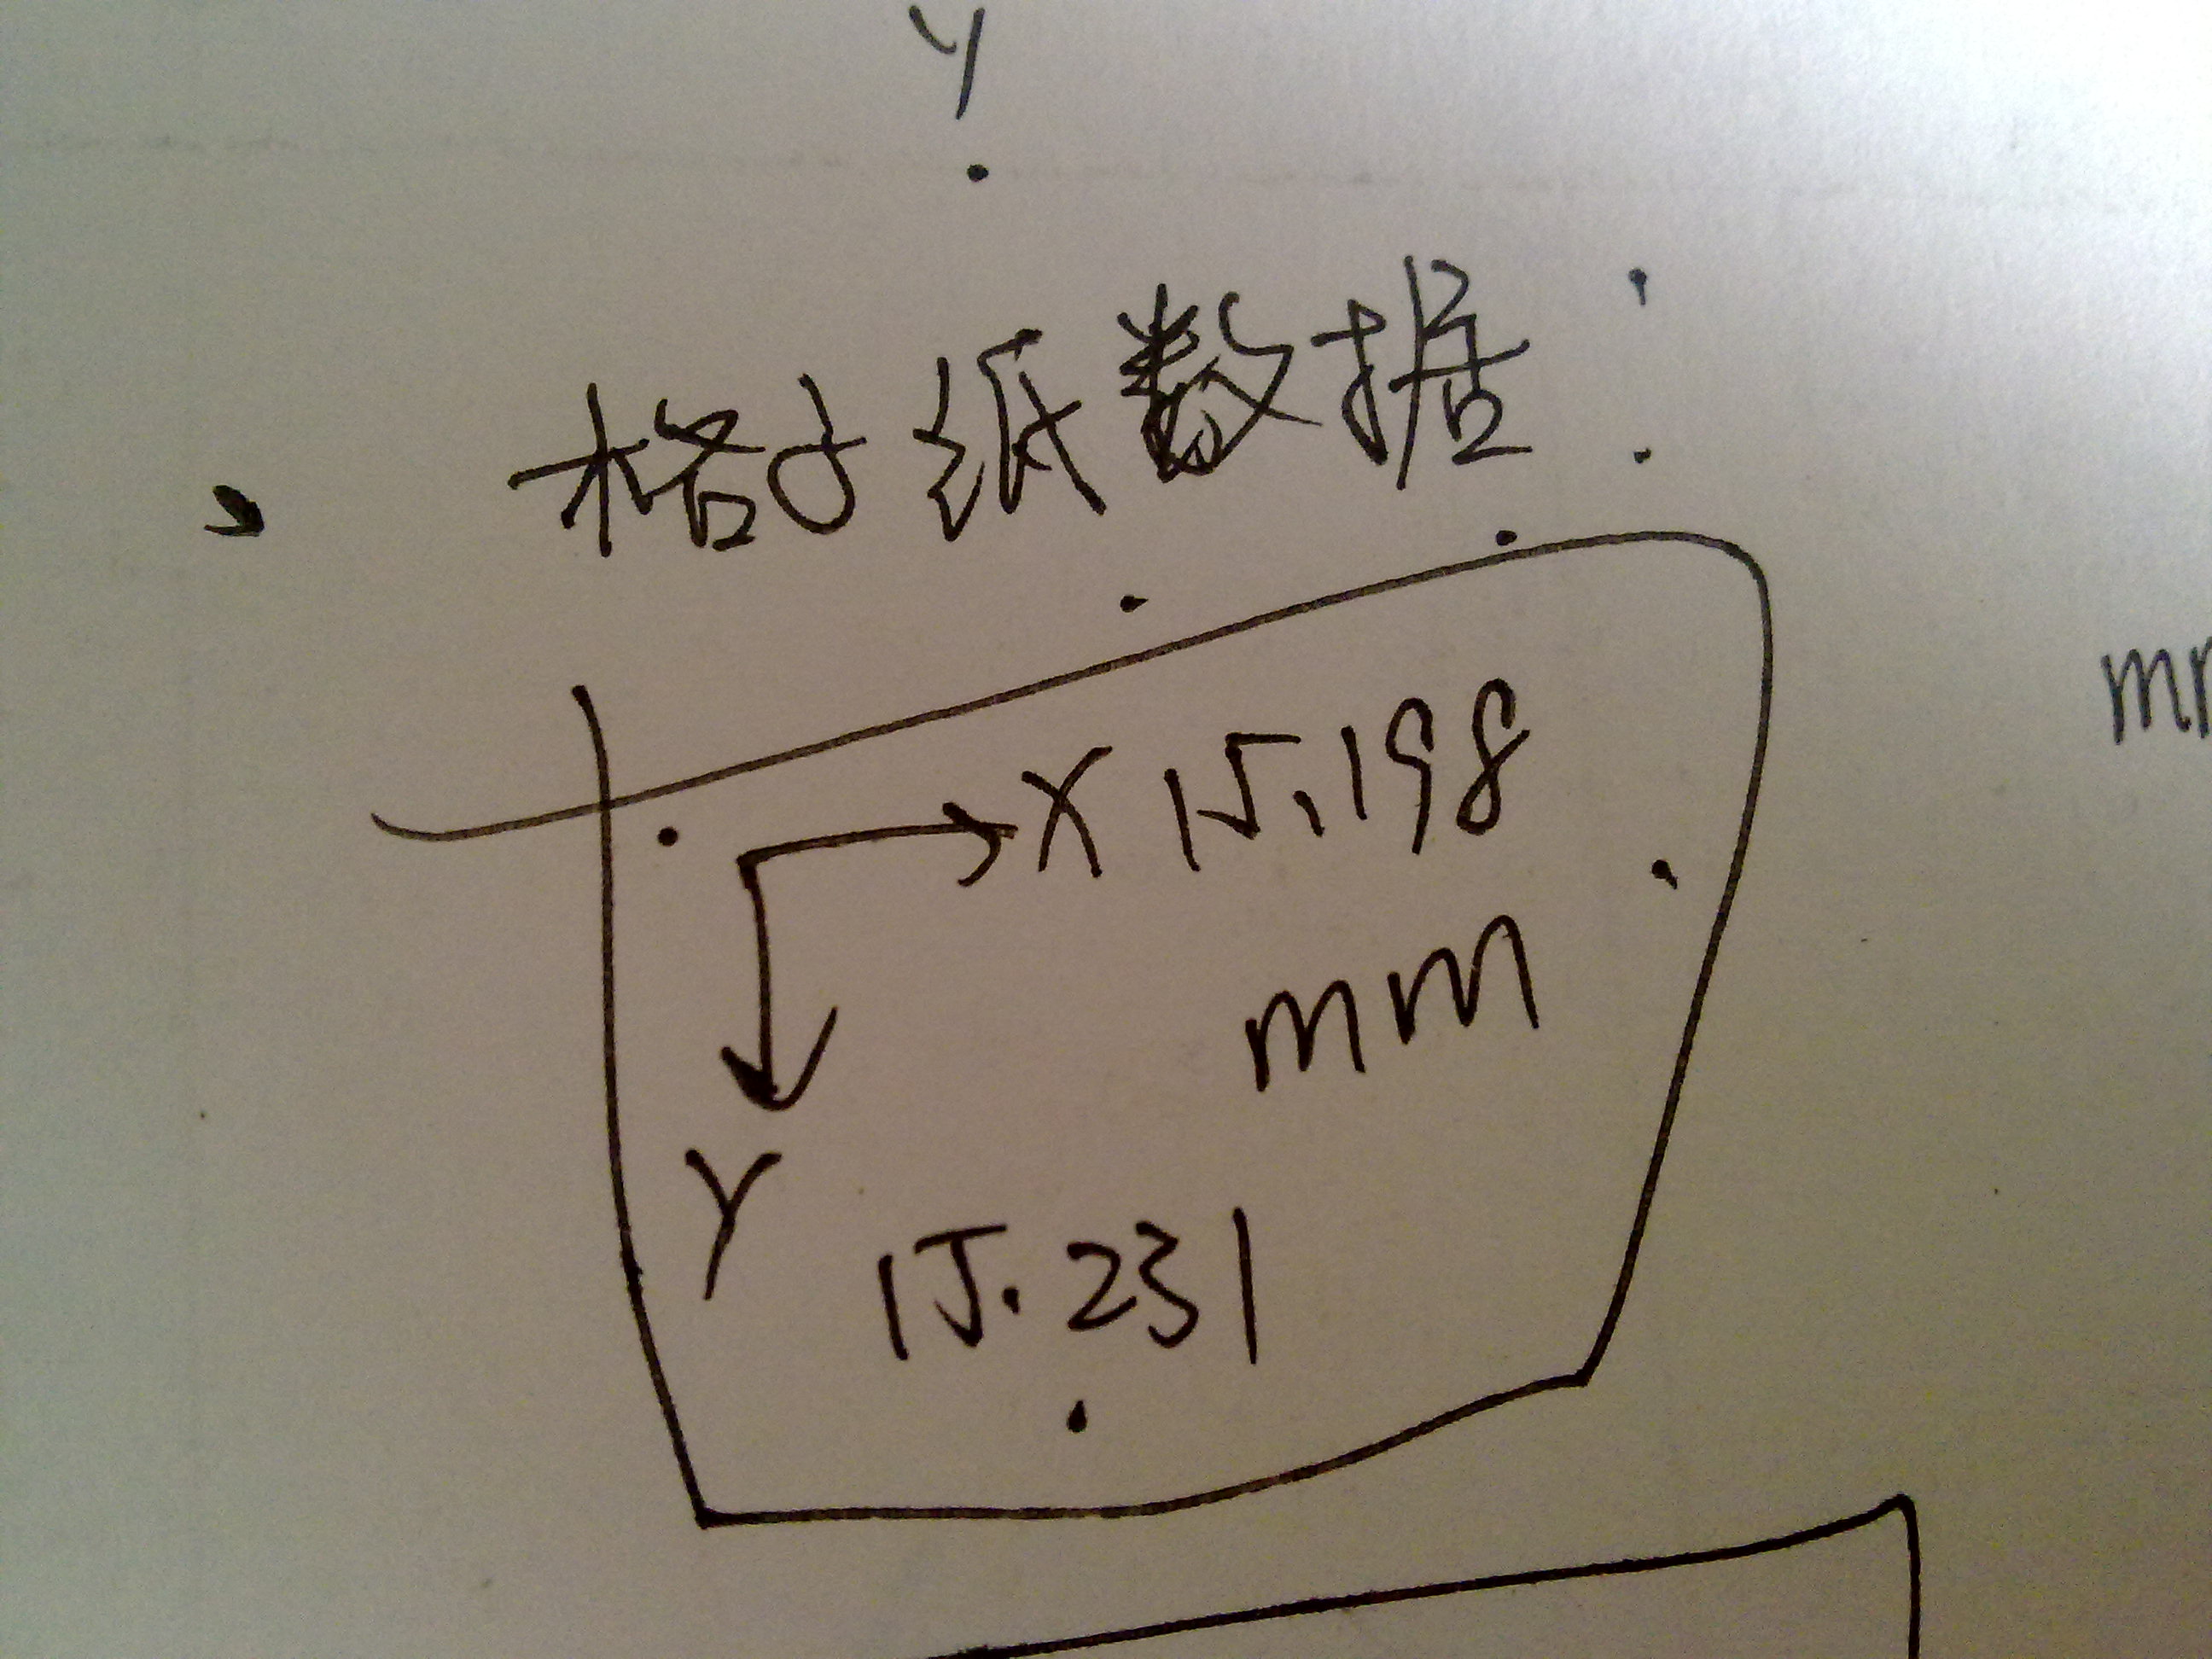 y
格子纸数据:
X 15.198
mm
Y
15.231